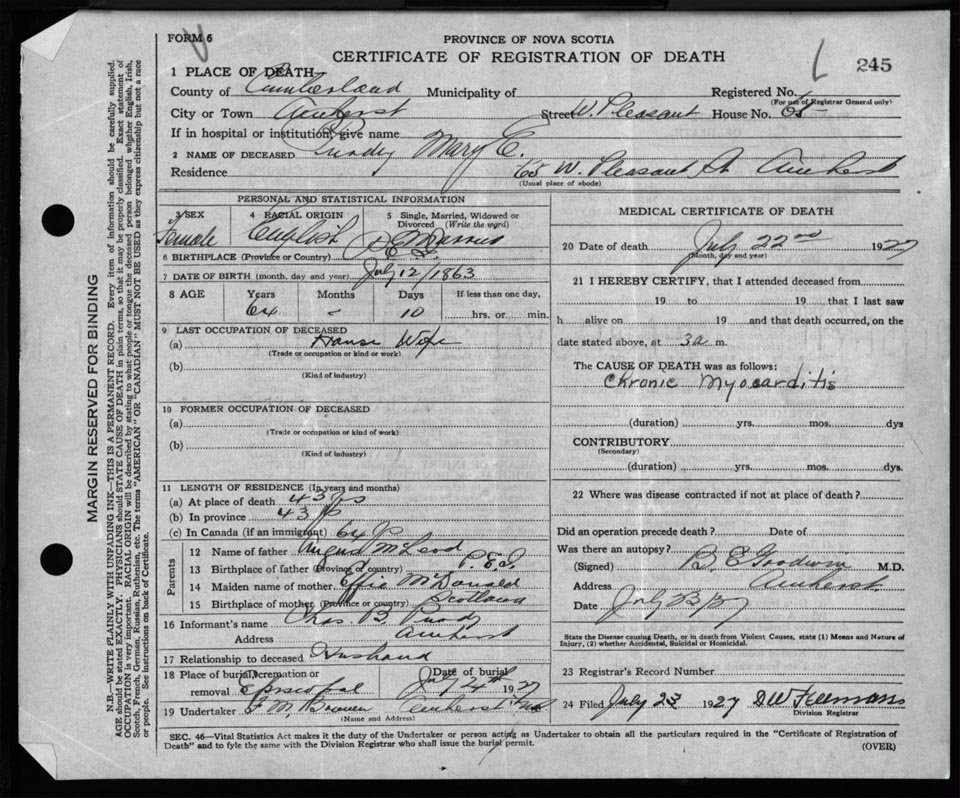 FORM 6
PROVINCE OF NOVA SCOTIA
CERTIFICATE OF REGISTRATION OF DEATH
245
1 PLACE OF DEATH
County of Cumberland Municipality of Registered No.
(For use of Registrar General only)
City or Town Amherst Street W. Pleasant House No. 65
If in hospital or institution, give name
2 NAME OF DECEASED Mary E.
Residence 65 W. Pleasant St Amherst
(Usual place of abode)
PERSONAL AND STATISTICAL INFORMATION
3 SEX Female
4 RACIAL ORIGIN English
5 Single, Married, Widowed or Divorced (Write the word) Married
6 BIRTHPLACE (Province or Country) P.E.I.
7 DATE OF BIRTH (month, day and year) July 12/1863
8 AGE Years Months Days If less than one day,
64 - 10 hrs. or min.
9 LAST OCCUPATION OF DECEASED
(a) House Wife
(Trade or occupation or kind or work)
(b)
(Kind of industry)
10 FORMER OCCUPATION OF DECEASED
(a)
(Trade or occupation or kind of work)
(b)
(Kind of industry)
11 LENGTH OF RESIDENCE (In years and months)
(a) At place of death 43 yrs
(b) In province 43 yrs
(c) In Canada (if an immigrant) 64 yrs
Parents
12 Name of father Angus McLeod
13 Birthplace of father (Province or country) P.E.I.
14 Maiden name of mother Effie McDonald
15 Birthplace of mother (Province or country) Scotland
16 Informant's name Chas. B.
Address Amherst
17 Relationship to deceased Husband
18 Place of burial, cremation or removal Episcopal
Date of burial July 24th 1927
19 Undertaker F. M. Brown Amherst
(Name and Address)
MEDICAL CERTIFICATE OF DEATH
20 Date of death July 22nd 1927
(Month, day and year)
21 I HEREBY CERTIFY, that I attended deceased from
19 to 19 that I last saw
h alive on 19 and that death occurred, on the
date stated above, at 3 a m.
The CAUSE OF DEATH was as follows:
Chronic Myocarditis
(duration) yrs. mos. dys
CONTRIBUTORY
(Secondary)
(duration) yrs. mos. dys.
22 Where was disease contracted if not at place of death?
Did an operation precede death? Date of
Was there an autopsy?
(Signed) B. E. Goodwin M.D.
Address Amherst.
Date July 23/27
State the Disease causing Death, or in death from Violent Causes, state (1) Means and Nature of
Injury, (2) whether Accidental, Suicidal or Homicidal.
23 Registrar's Record Number
24 Filed July 23 1927 D W
Division Registrar
SEC. 46—Vital Statistics Act makes it the duty of the Undertaker or person acting as Undertaker to obtain all the particulars required in the "Certificate of Registration of
Death" and to fyle the same with the Division Registrar who shall issue the burial permit.
(OVER)
MARGIN RESERVED FOR BINDING
N.B.—WRITE PLAINLY WITH UNFADING INK—THIS IS A PERMANENT RECORD. Every item of information should be carefully supplied.
AGE should be stated EXACTLY. PHYSICIANS should STATE CAUSE OF DEATH in plain terms, so that it may be properly classified. Exact statement of
OCCUPATION is very important. RACIAL ORIGIN will be described by stating to what people or tongue the deceased person belonged whether English, Irish,
Scotch, French, German, Russian, Ruthenian, etc. The terms "AMERICAN" OR "CANADIAN" MUST NOT BE USED as they express citizenship but not a race
or people. See instructions on back of Certificate.